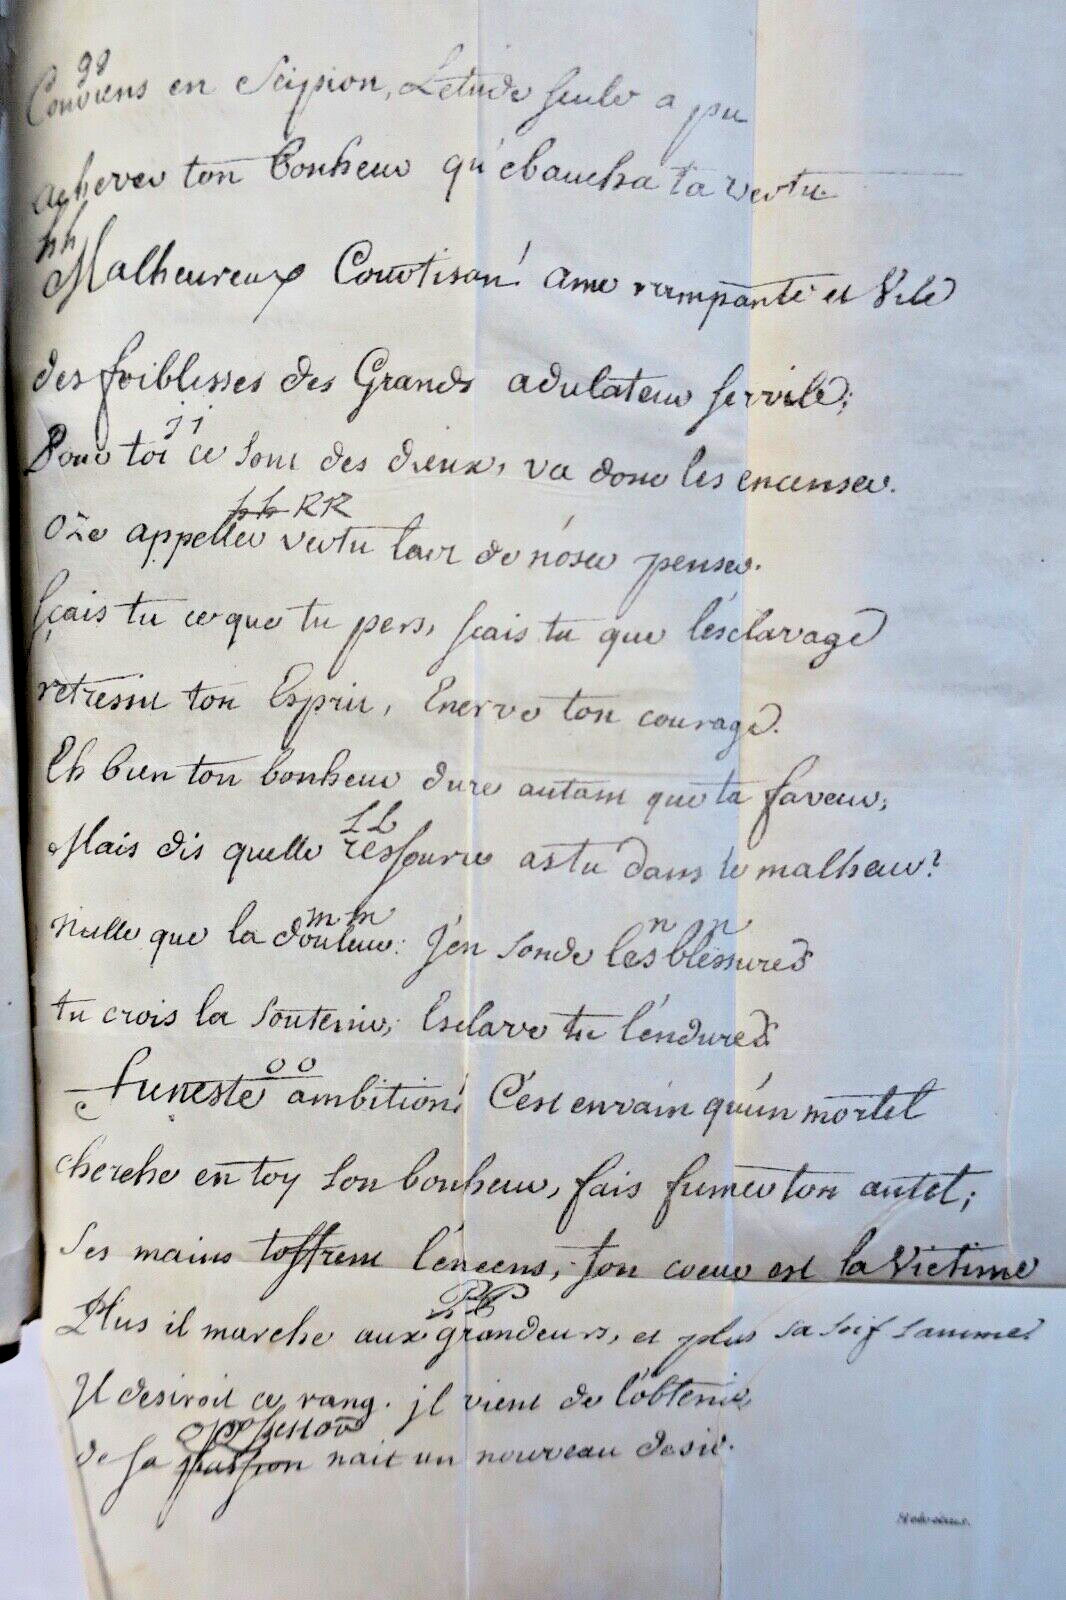 gg
Conviens en Scipion, L'etude seule a pu
achever ton bonheur qu'ebaucha ta vertu.
hh
Malheureux Courtisan! ame rampante et Vile
des foiblesses des Grands adulateur servile;
jj
Pour toi ce sont des dieux, va donc les encenser.
hh RR
Oze appeller vertu l'art de n'óser penser.
sçais tu ce que tu pers, sçais tu que l'ésclavage
retressit ton Esprit, Enerve ton courage.
Eh bien ton bonheur dure autant que ta faveur;
LL
Mais dis quelle ressource as tu dans le malheur?
mm nn
Nulle que la douleur: j'en sonde les blessures
tu crois la soutenir, Esclave tu l'endures.
oo
funeste ambition! C'est envain qu'un mortel
cherche en toy son bonheur, fais fumer ton autel;
Ses mains t'offrent l'encens, son coeur est la Victime
PP
Plus il marche aux grandeurs, et plus sa soif s'anime.
Il desiroit ce rang. jl vient de l'obtenir,
possession
de sa passion nait un nouveau desir.